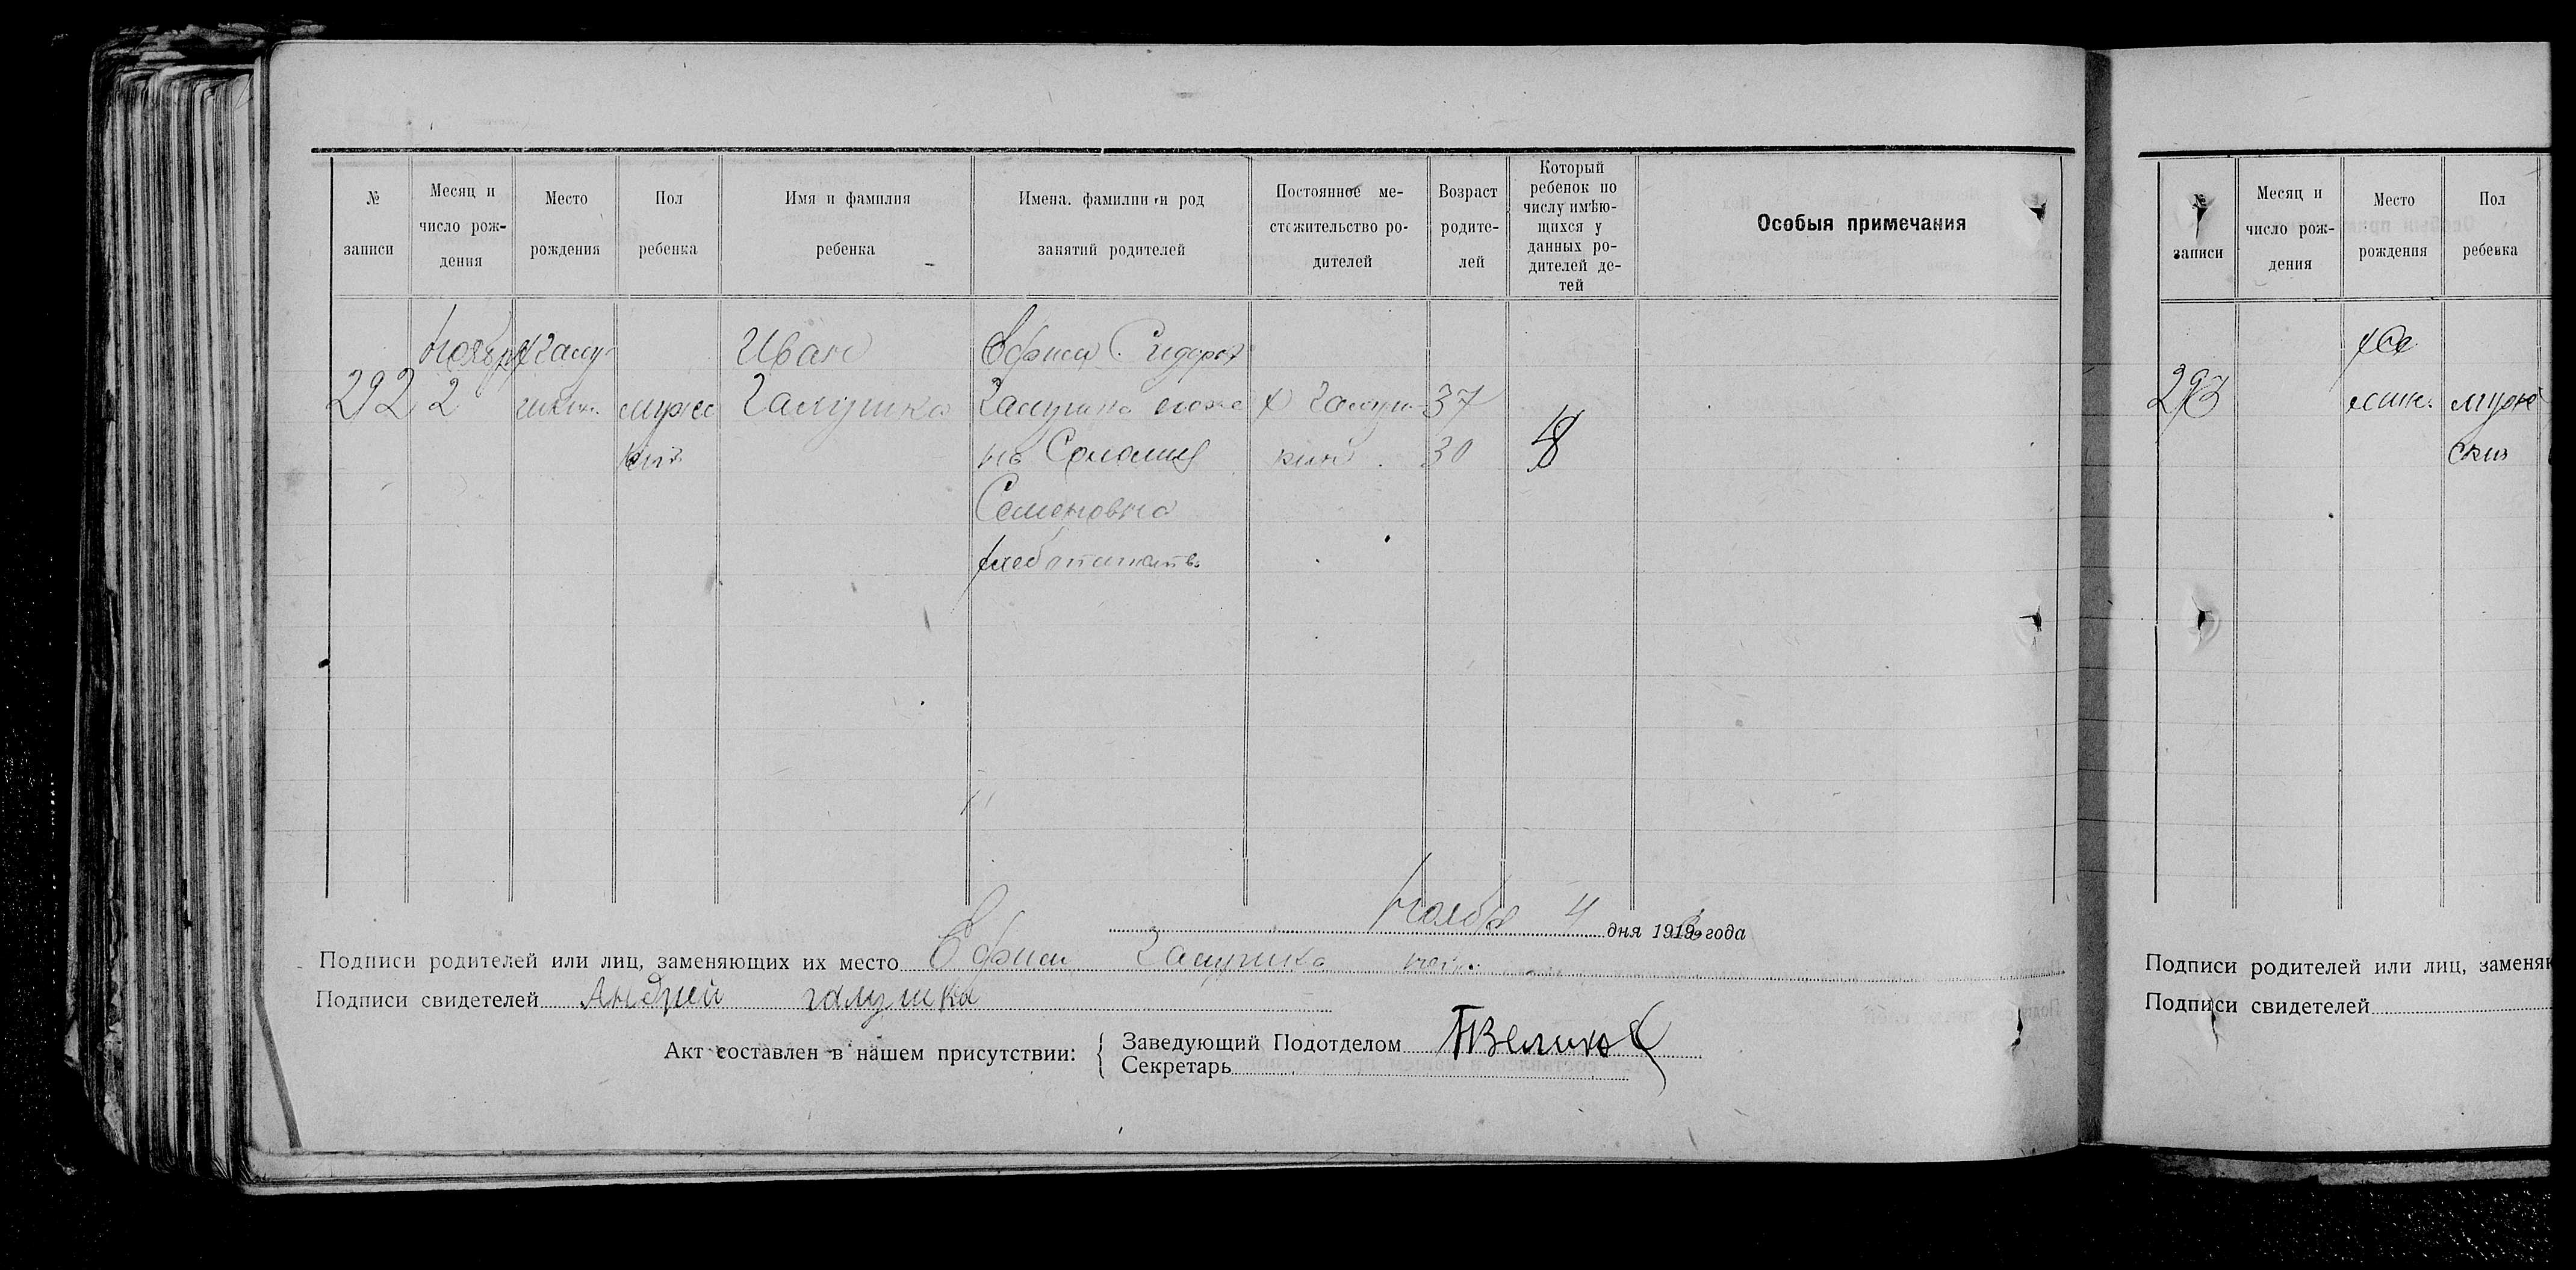 № записи
Месяц и число рождения
Место рождения
Пол ребенка
Имя и фамилия ребенка
Имена. фамилии и род занятий родителей
Постоянное местожительство родителей
Возраст родителей
Который ребенок по числу имѣющихся у данных родителей детей
Особыя примечания
292
Ноябр
2
х Галу-
шкин.
мужс
кий
Иван
Галушка
Сидоров
Галушка
на Соломия
Семеновна
хлебопашеств.
х Галуш-
кин
37
30
8
Ноября 4 дня 1919 года
Подписи родителей или лиц, заменяющих их место Галушка
Подписи свидетелей Андрей галушка
Акт составлен в нашем присутствии:
Заведующий Подотделом
Секретарь
№ записи
Месяц и число рождения
Место рождения
Пол ребенка
293
мужс
ский
Подписи родителей или лиц, заменяю
Подписи свидетелей